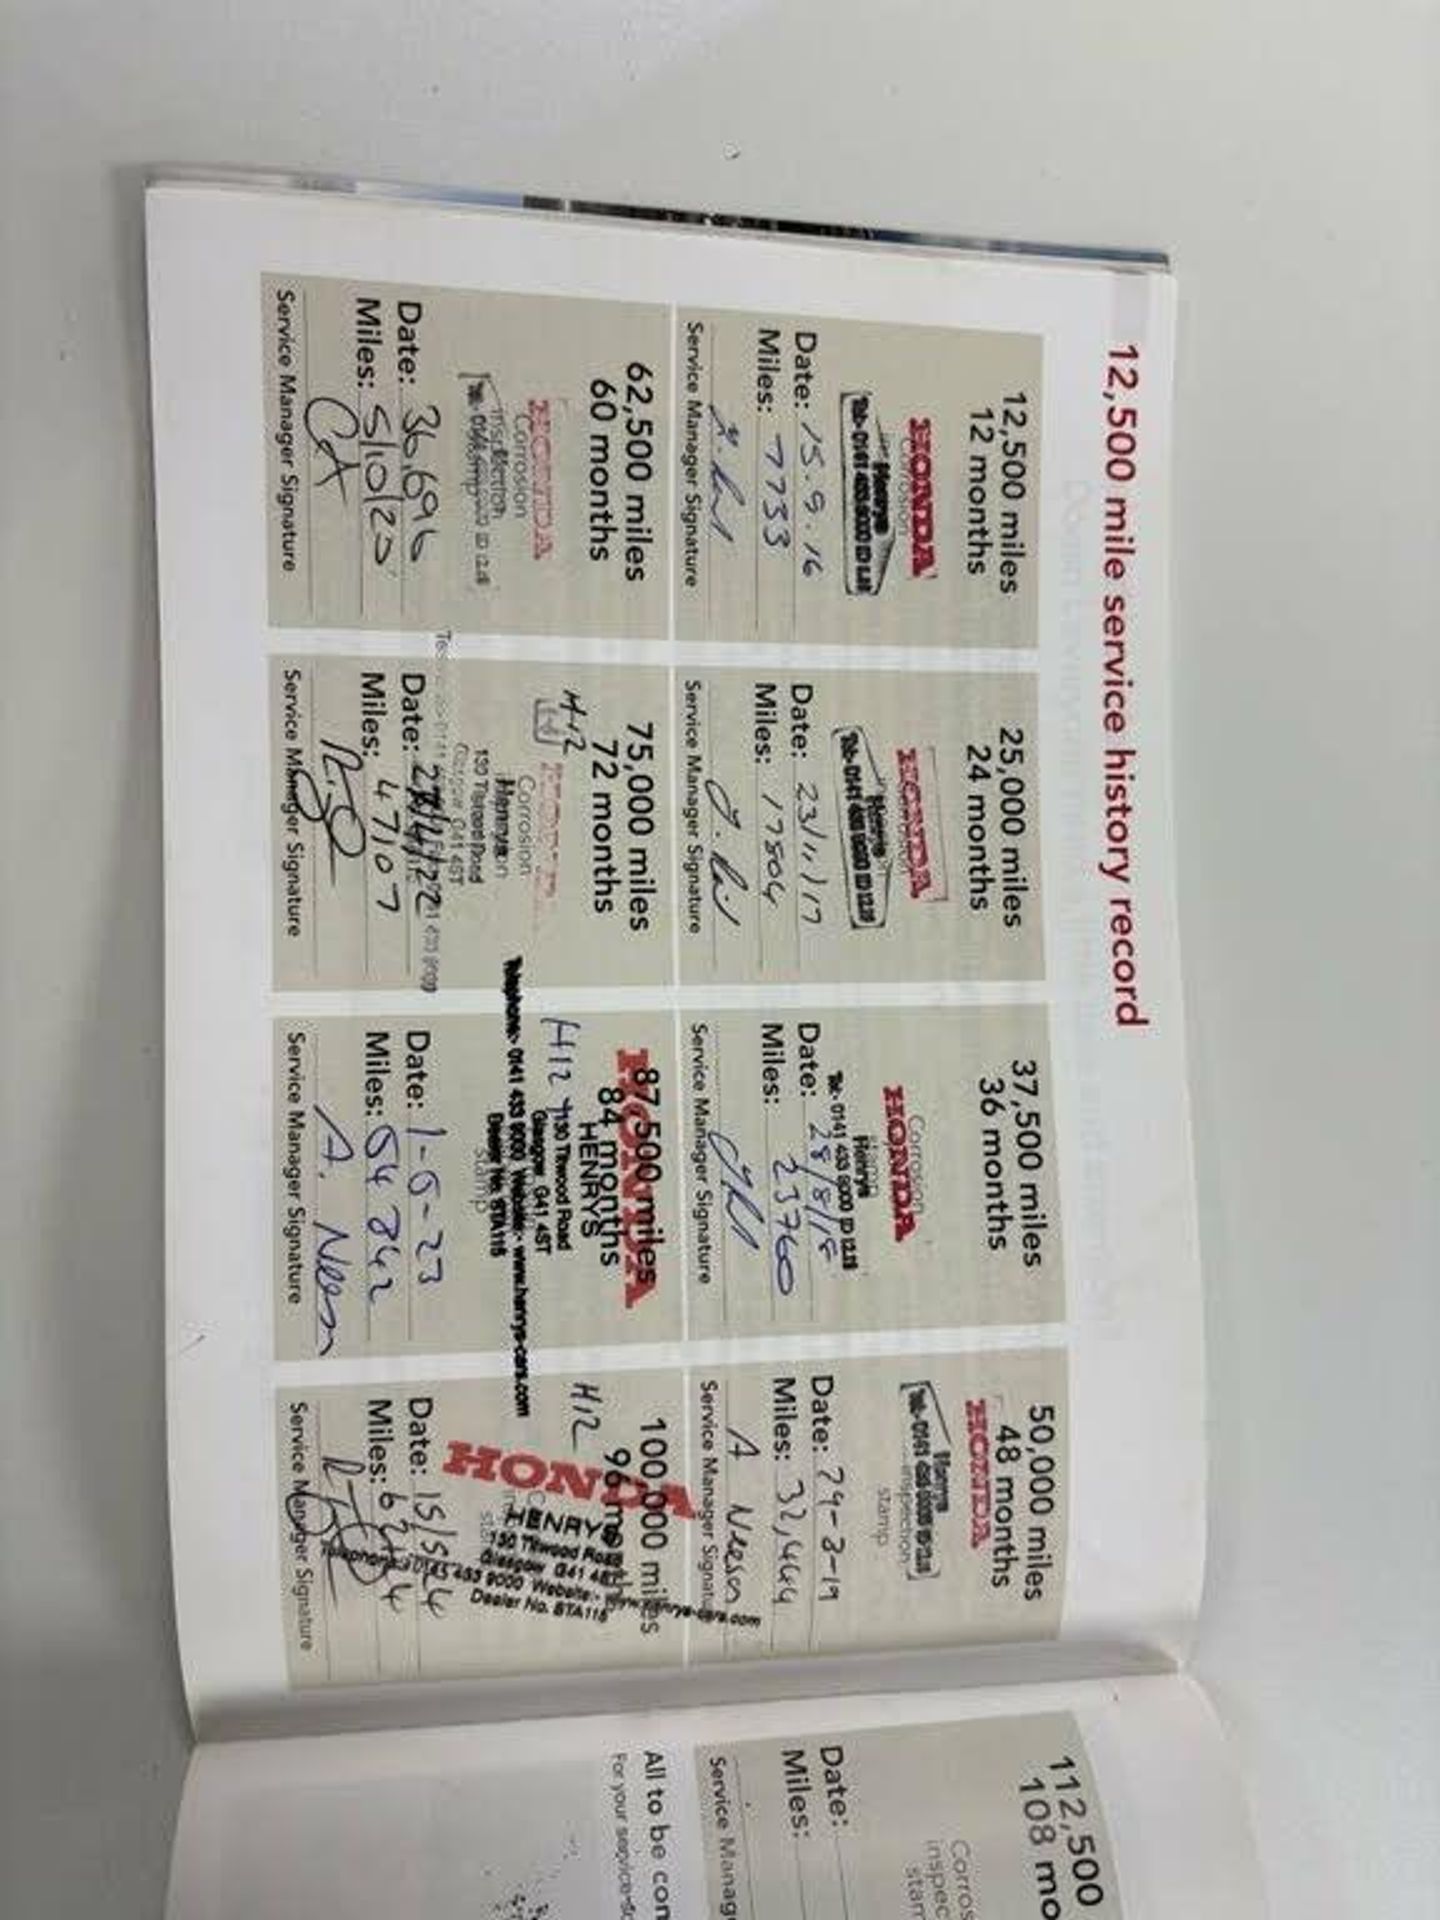 12,500 mile service history record
12,500 miles
12 months
HONDA
Corrosion
Henrys
Tel:- 0141 433 9000
Date: 15.9.16
Miles: 7733
Service Manager Signature
25,000 miles
24 months
HONDA
Henrys
Tel:- 0141 433 9000
Date: 23/11/17
Miles: 17804
Service Manager Signature
37,500 miles
36 months
Corrosion
HONDA
Henrys
Tel:- 0141 433 9000
Date: 28/8/18
Miles: 23760
Service Manager Signature
50,000 miles
48 months
HONDA
Henrys
inspection
stamp
Date: 29-8-19
Miles: 32,444
A Neeson
Service Manager Signature
62,500 miles
60 months
HONDA
Corrosion
Inspection
Date: 36,696
Miles: 5/10/20
CA
Service Manager Signature
75,000 miles
72 months
H12
Corrosion
Henrys
130 Titwood Road
Glasgow G41 4ST
Date:
Miles: 47107
Service Manager Signature
87,500 miles
84 months
HONDA
H12
HENRYS
130 Titwood Road
Glasgow G41 4ST
Telephone:- 0141 433 9000 Website:- www.henrys-cars.com
Dealer No. STA115
stamp
Date: 1-5-23
Miles: 54842
A. Neeson
Service Manager Signature
100,000 miles
H12
HONDA
HENRYS
130 Titwood Road
Glasgow G41 4ST
Telephone:- 0141 433 9000 Website:- www.henrys-cars.com
Dealer No. STA115
Date: 15/5/24
Miles:
Service Manager Signature
112,500
108 mo
Corros
inspec
stam
Date:
Miles:
Service Manag
All to be con
For your service